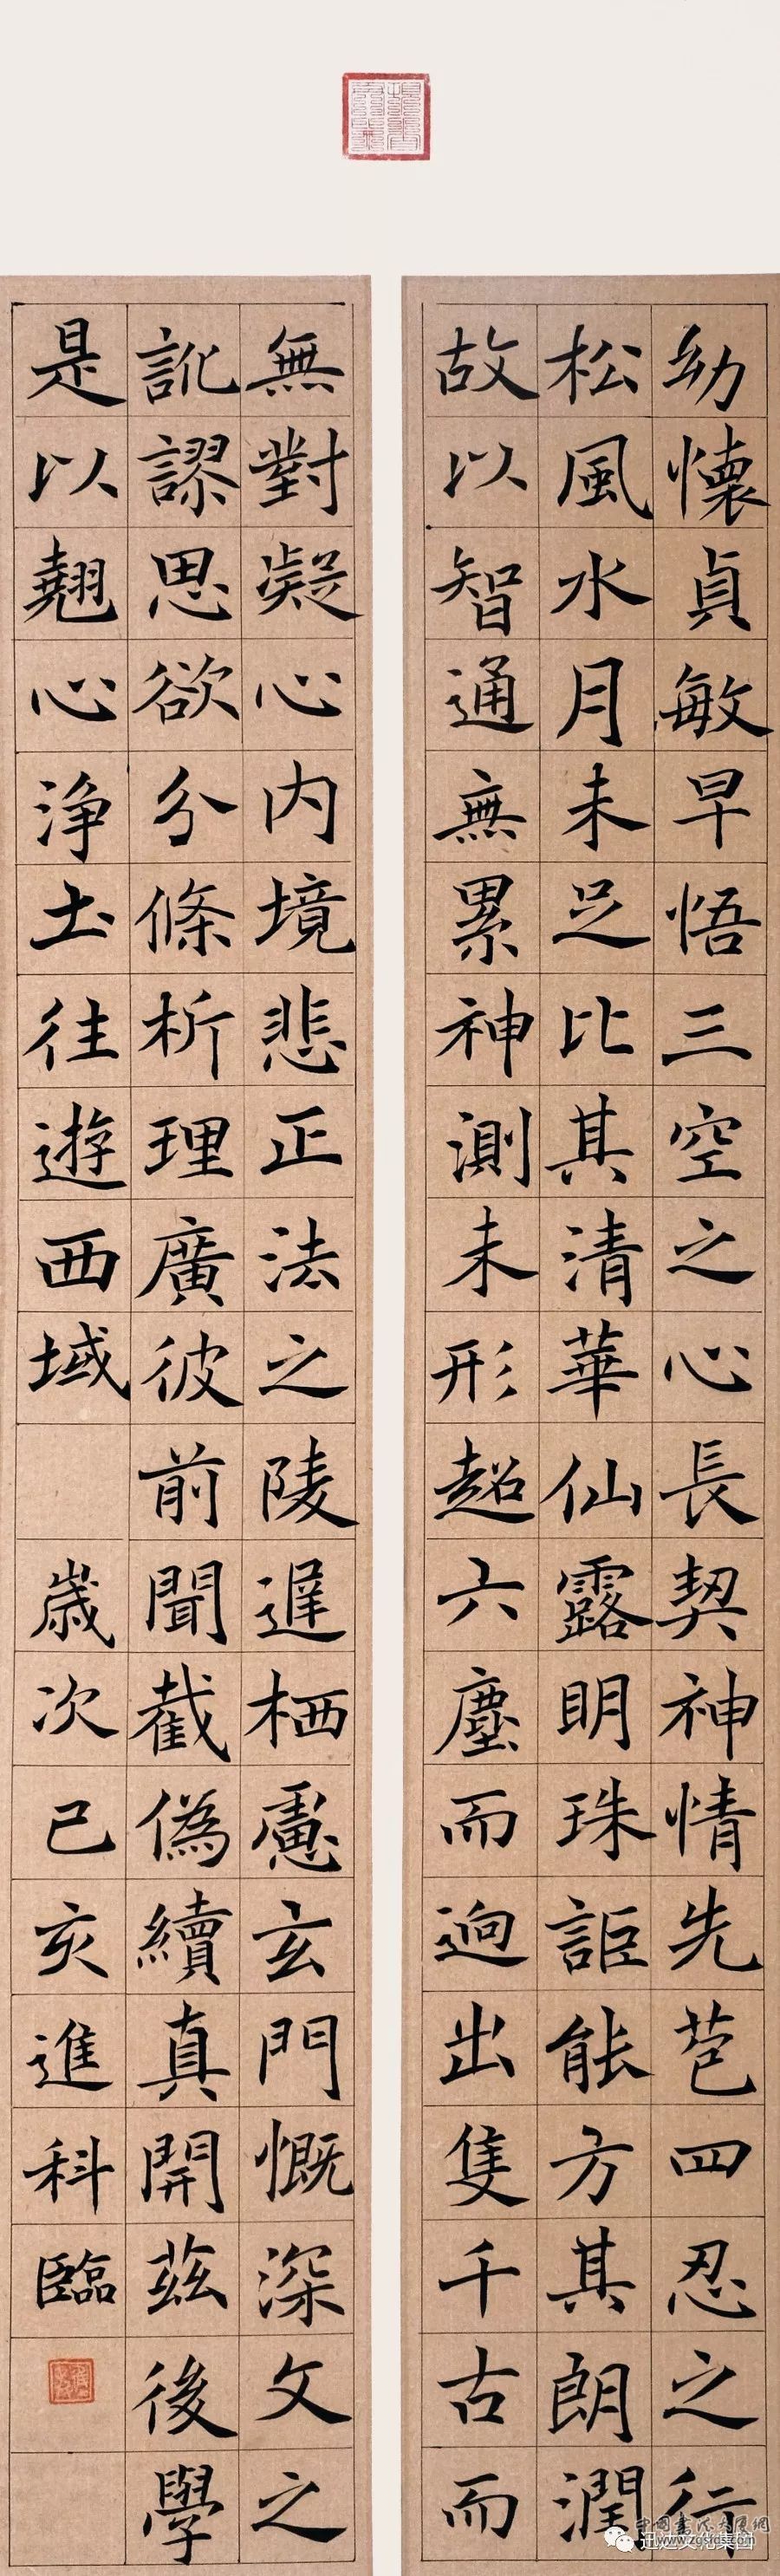 幼懷貞敏早悟三空之心長契神情先苞四忍之行
松風水月未足比其清華仙露明珠詎能方其朗潤
故以智通無累神測未形超六塵而迥出隻千古而
無對凝心內境悲正法之陵遲栖慮玄門慨深文之
訛謬思欲分條析理廣彼前聞截偽續真開茲後學
是以翹心淨土往遊西域 歲次己亥進科臨
www.zgsfds.com